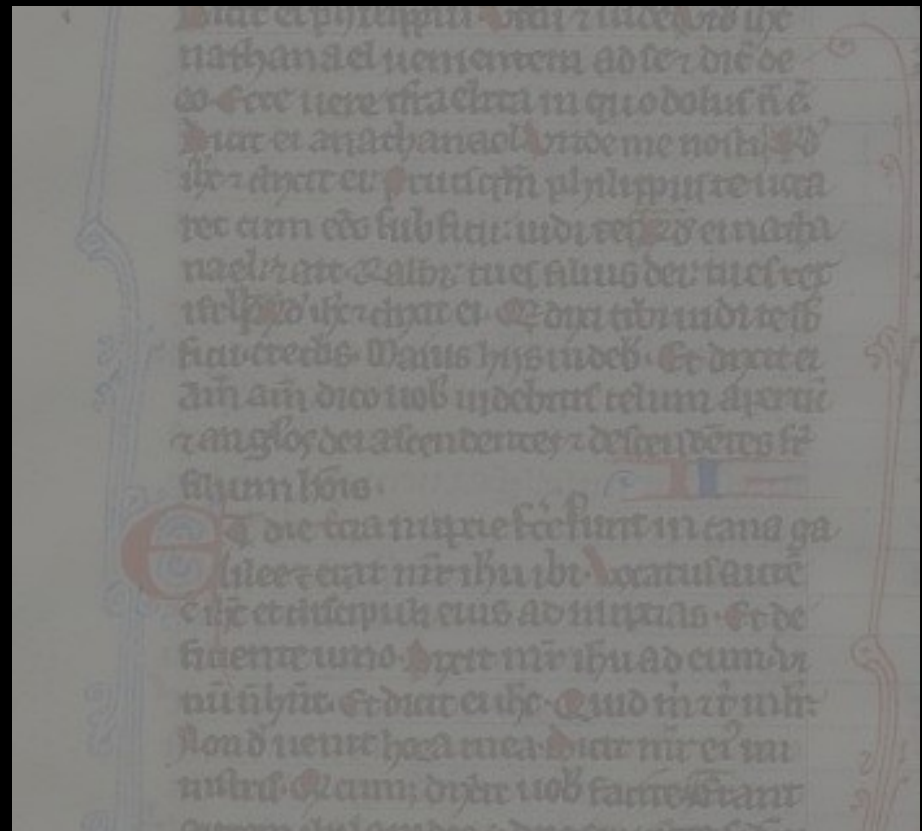 Dicit ei philippus Veni ⁊ uide Vid ihc
nathanael uenientem ad se ⁊ dic̄ de
eo Ecce uere isr̄aelita in quo dolus n̄ ē
Dicit ei nathanael Vnde me nosti R̄
ihc ⁊ dixit ei Priusq̄m philippus te uoca
ret cum eēs sub ficu uidi te R̄ ei natha
nael ⁊ ait Rabbi tu es filius dei tu es rex
isr̄l R̄ ihc ⁊ dixit ei Q̄ dixi tibi uidi te sb̄
ficu credis Maius hijs uideb̄ Et dixit ei
Am̄ am̄ dico uob̄ uidebitis celum apertū
⁊ anglōs dei ascendentes ⁊ descendētes s̄
filium hōis
II
ET die tcīa nuptie fcē sunt in cana ga
lilee ⁊ erat mr̄ ihū ibi Vocatus autē
ē ihc et discipuli eius ad nuptias Et de
ficiente uino Dicit mr̄ ihū ad eum Vi
nū n̄ hn̄t Et dicit ei ihc Quid m̄ ⁊ t̄ mlr̄
Nond̄ uenit hora mea Dicit mr̄ ei9 mi
nistris Q̄cumq; dixerit uob̄ facite Erant